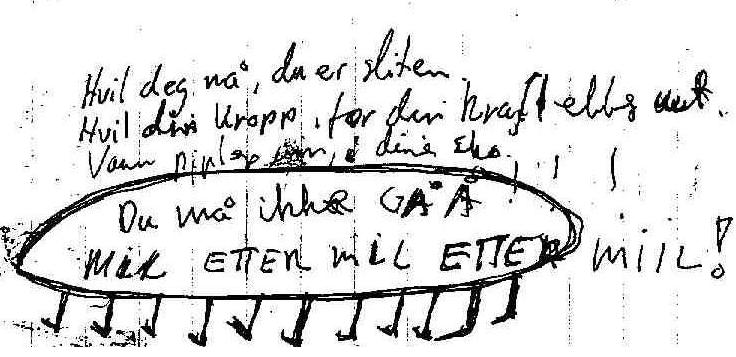 Hvil deg nå, du er sliten.
Hvil din kropp, for din kraft ebbs ut.
Vann pipler inn, i dine sko.
Du må ikke GÅÅ
MIIL ETTER MIL ETTER MIIL!